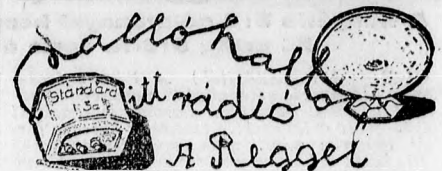 Halló hallo
Standard
itt rádió
A Reggel